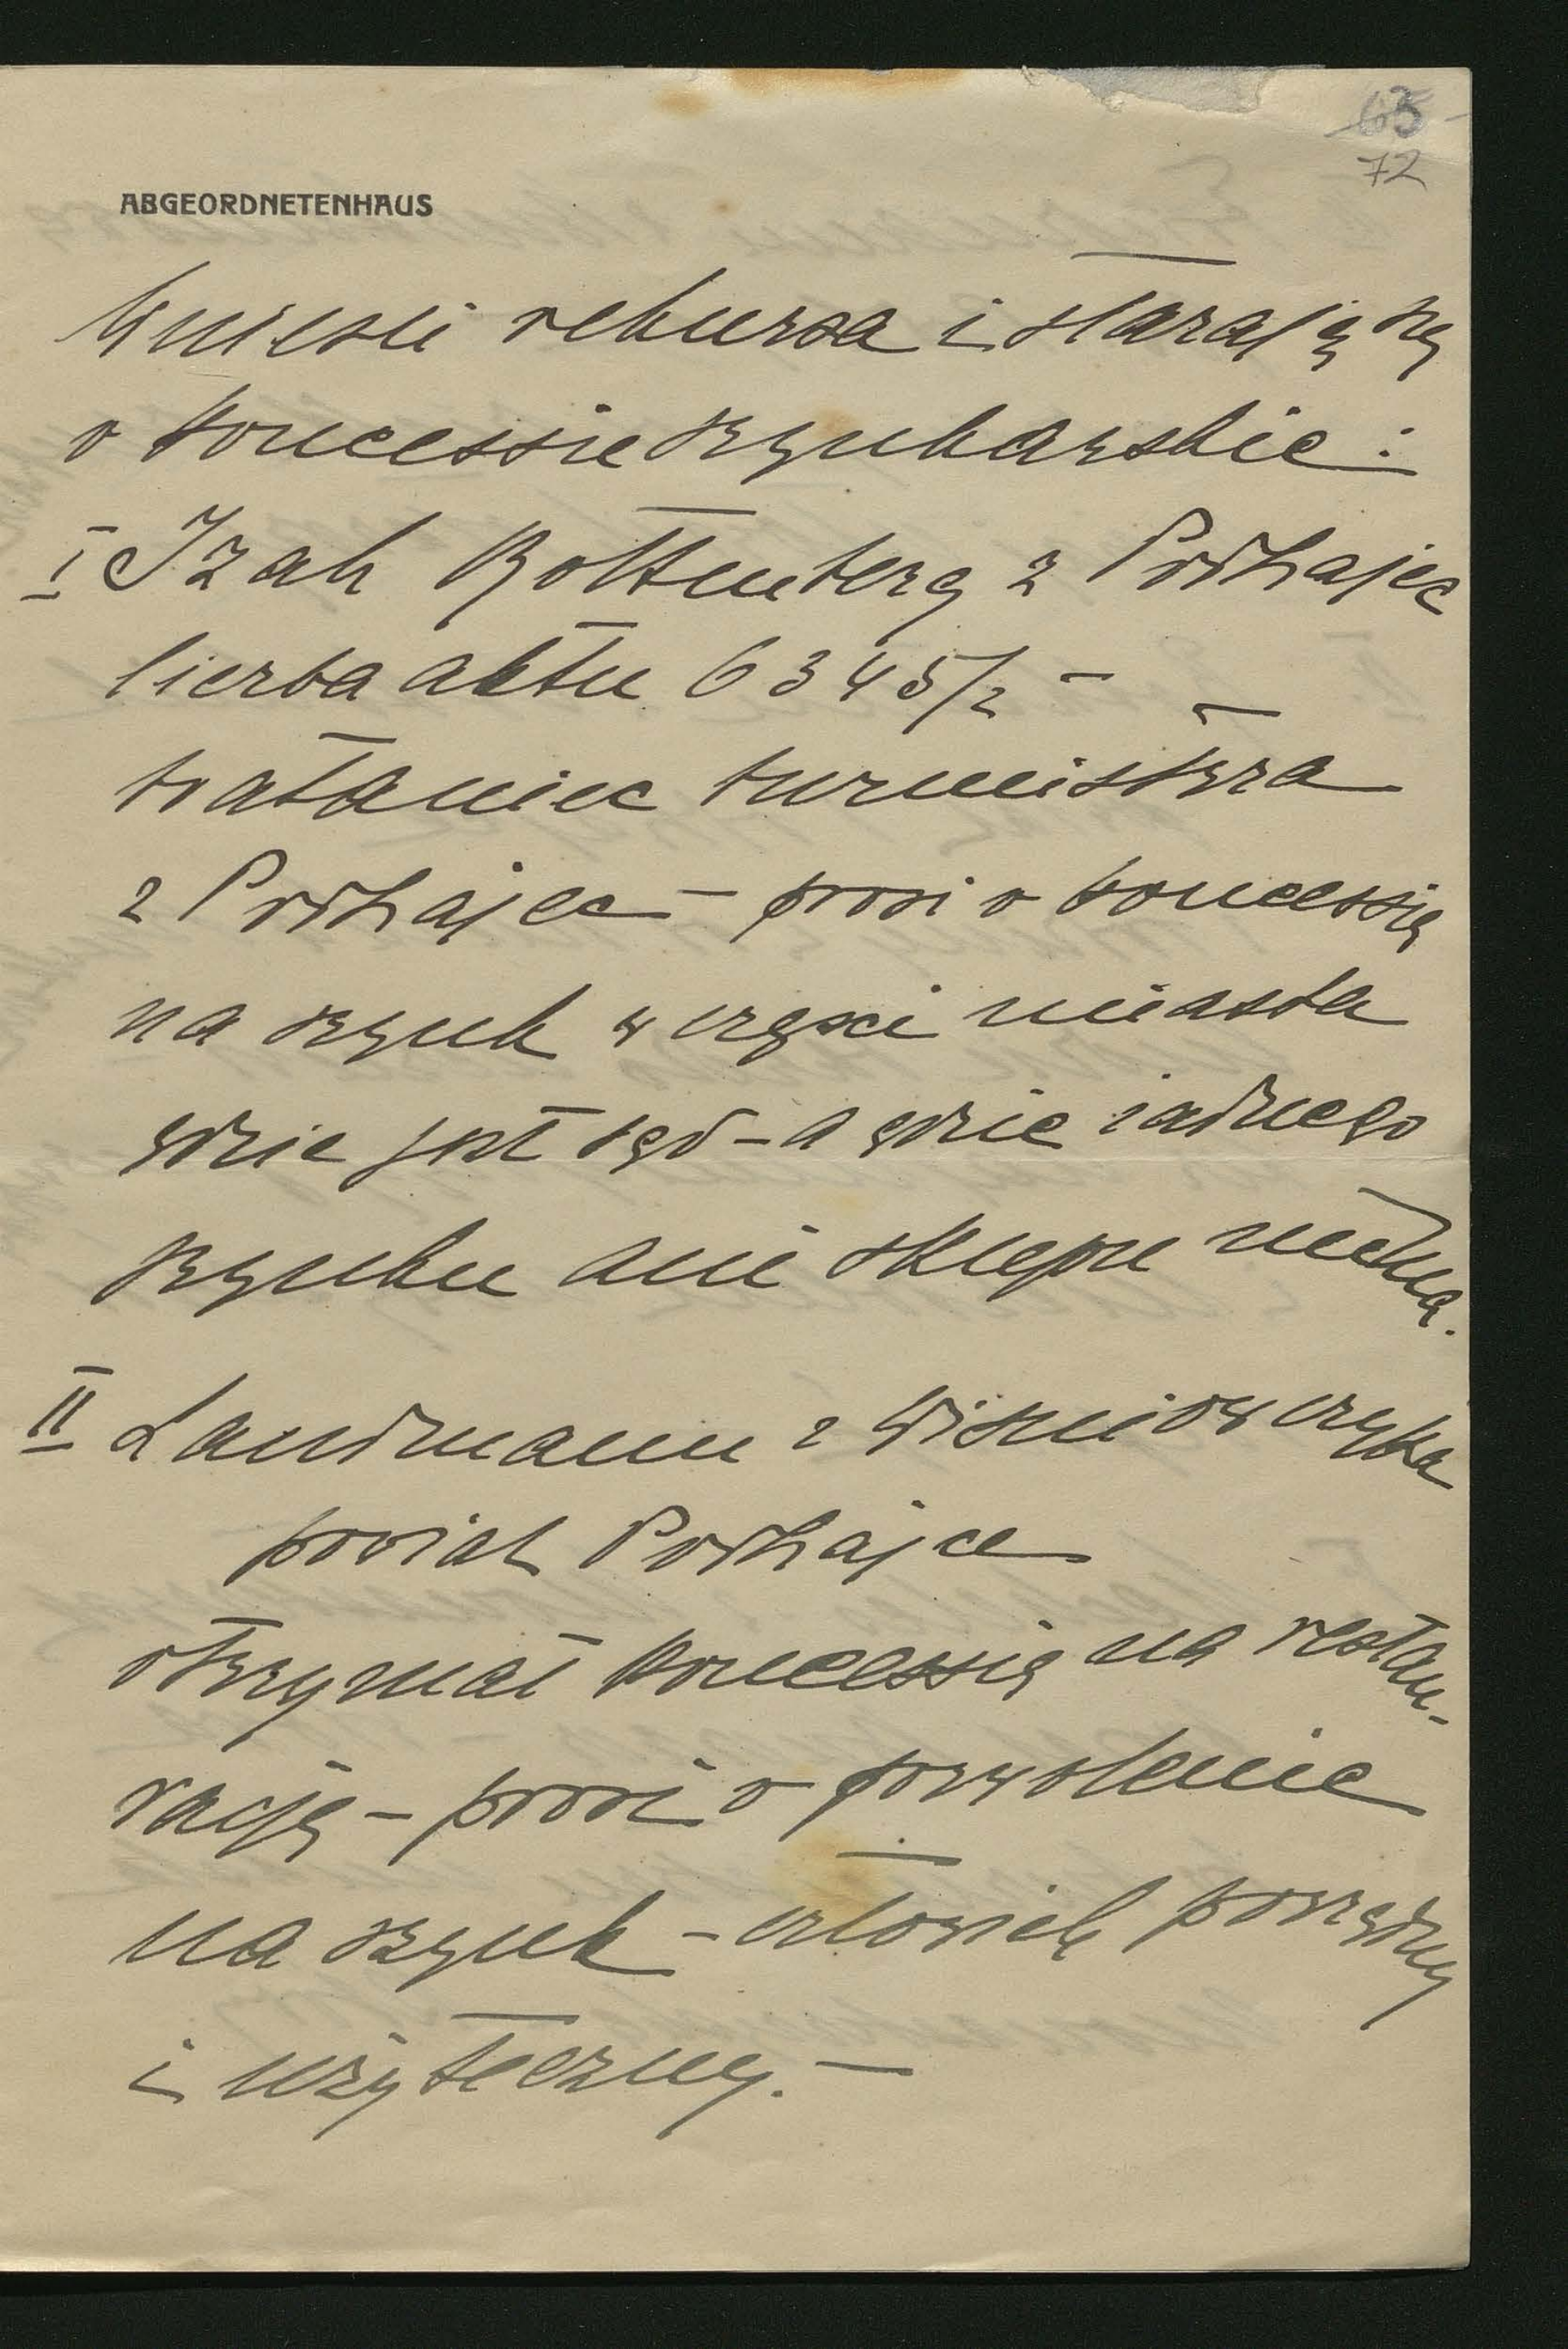 63
72
ABGEORDNETENHAUS
Wnieśli rekursa i starają się
o koncessie szynkarskie:
I Izak Rottenberg z Podhajec
liczba aktu 6345/2 –
brataniec burmistrza
z Podhajec – prosi o koncessię
na szynk w części miasta
gdzie jest sąd – a gdzie żadnego
szynku ani sklepu niema.
II Landmann z Wisniowczyka
powiat Podhajce
otrzymał koncessię na restau-
rację – prosi o pozwolenie
na szynk – człowiek porządny
i użyteczny. –